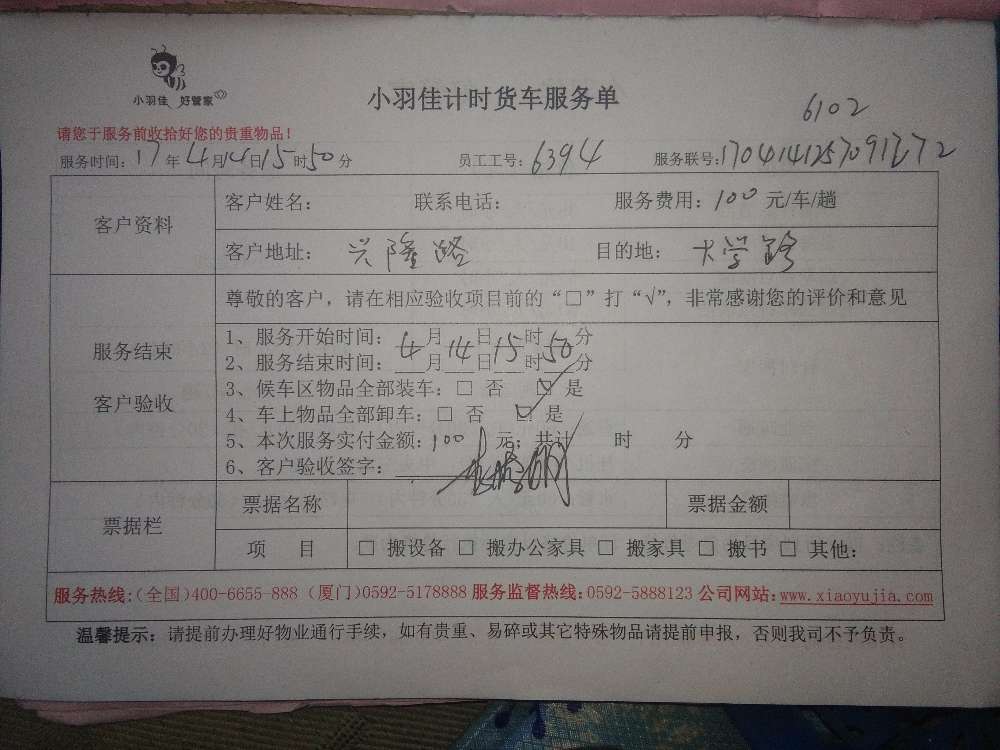 小羽佳 好管家
小羽佳计时货车服务单
6102
请您于服务前收拾好您的贵重物品!
服务时间:17年4月14日15时50分 员工工号:6394 服务联号:
客户资料
客户姓名: 联系电话: 服务费用:100元/车/趟
客户地址:兴隆路 目的地:大学路
服务结束
客户验收
尊敬的客户，请在相应验收项目前的“□”打“√”，非常感谢您的评价和意见
1、服务开始时间:4月14日15时50分
2、服务结束时间:__月__日__时__分
3、候车区物品全部装车:□ 否 ☑ 是
4、车上物品全部卸车:□ 否 ☑ 是
5、本次服务实付金额:100元；共计 时 分
6、客户验收签字:
票据栏
票据名称 票据金额
项 目 □ 搬设备 □ 搬办公家具 □ 搬家具 □ 搬书 □ 其他:
服务热线:(全国)400-6655-888 (厦门)0592-5178888 服务监督热线:0592-5888123 公司网站:www.xiaoyujia.com
温馨提示：请提前办理好物业通行手续，如有贵重、易碎或其它特殊物品请提前申报，否则我司不予负责。